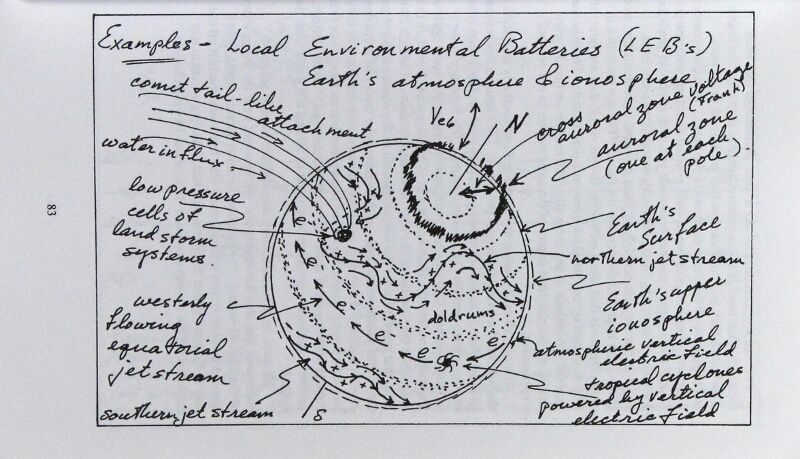 Examples - Local Environmental Batteries (LEB's)
Earth's atmosphere & ionosphere
comet tail-like
attachment
water influx
low pressure
cells of
land storm
systems.
westerly
flowing
equatorial
jet stream
southern jet stream
S
N
cross
auroral zone voltage
(Frank)
auroral zone
(one at each
pole).
Earth's
Surface
northern jet stream
Earth's upper
ionosphere
atmospheric vertical
electric field
tropical cyclones
powered by vertical
electric field
doldrums
e
e
e
e
e
e
83